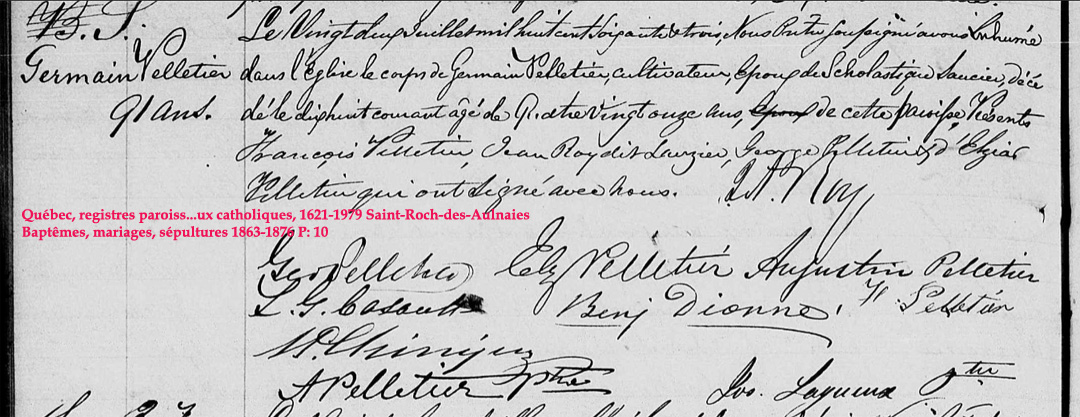 B. S.
Germain Pelletier
91 ans.
Le Vingt deux Juillet mil huit cent soixante & trois, Nous Prêtre soussigné avons Inhumé
dans l'Eglise le corps de Germain Pelletier, cultivateur, Epoux de Scholastique Saucier, décé
dé le dix huit courant âgé de Quatre Vingt onze ans, de cette paroisse, Présents
François Pelletier, Jean Roy dit Lauzier, George Pelletier, & d'Elzéar
Pelletier qui ont signé avec nous.
Roy
Québec, registres paroiss...ux catholiques, 1621-1979 Saint-Roch-des-Aulnaies
Baptêmes, mariages, sépultures 1863-1876 P: 10
Geo Pelletier Elz Pelletier Augustin Pelletier
L. G. Casault Benj Dionne, Pelletier
A Pelletier Ptre Jos. Lagueux Ptre